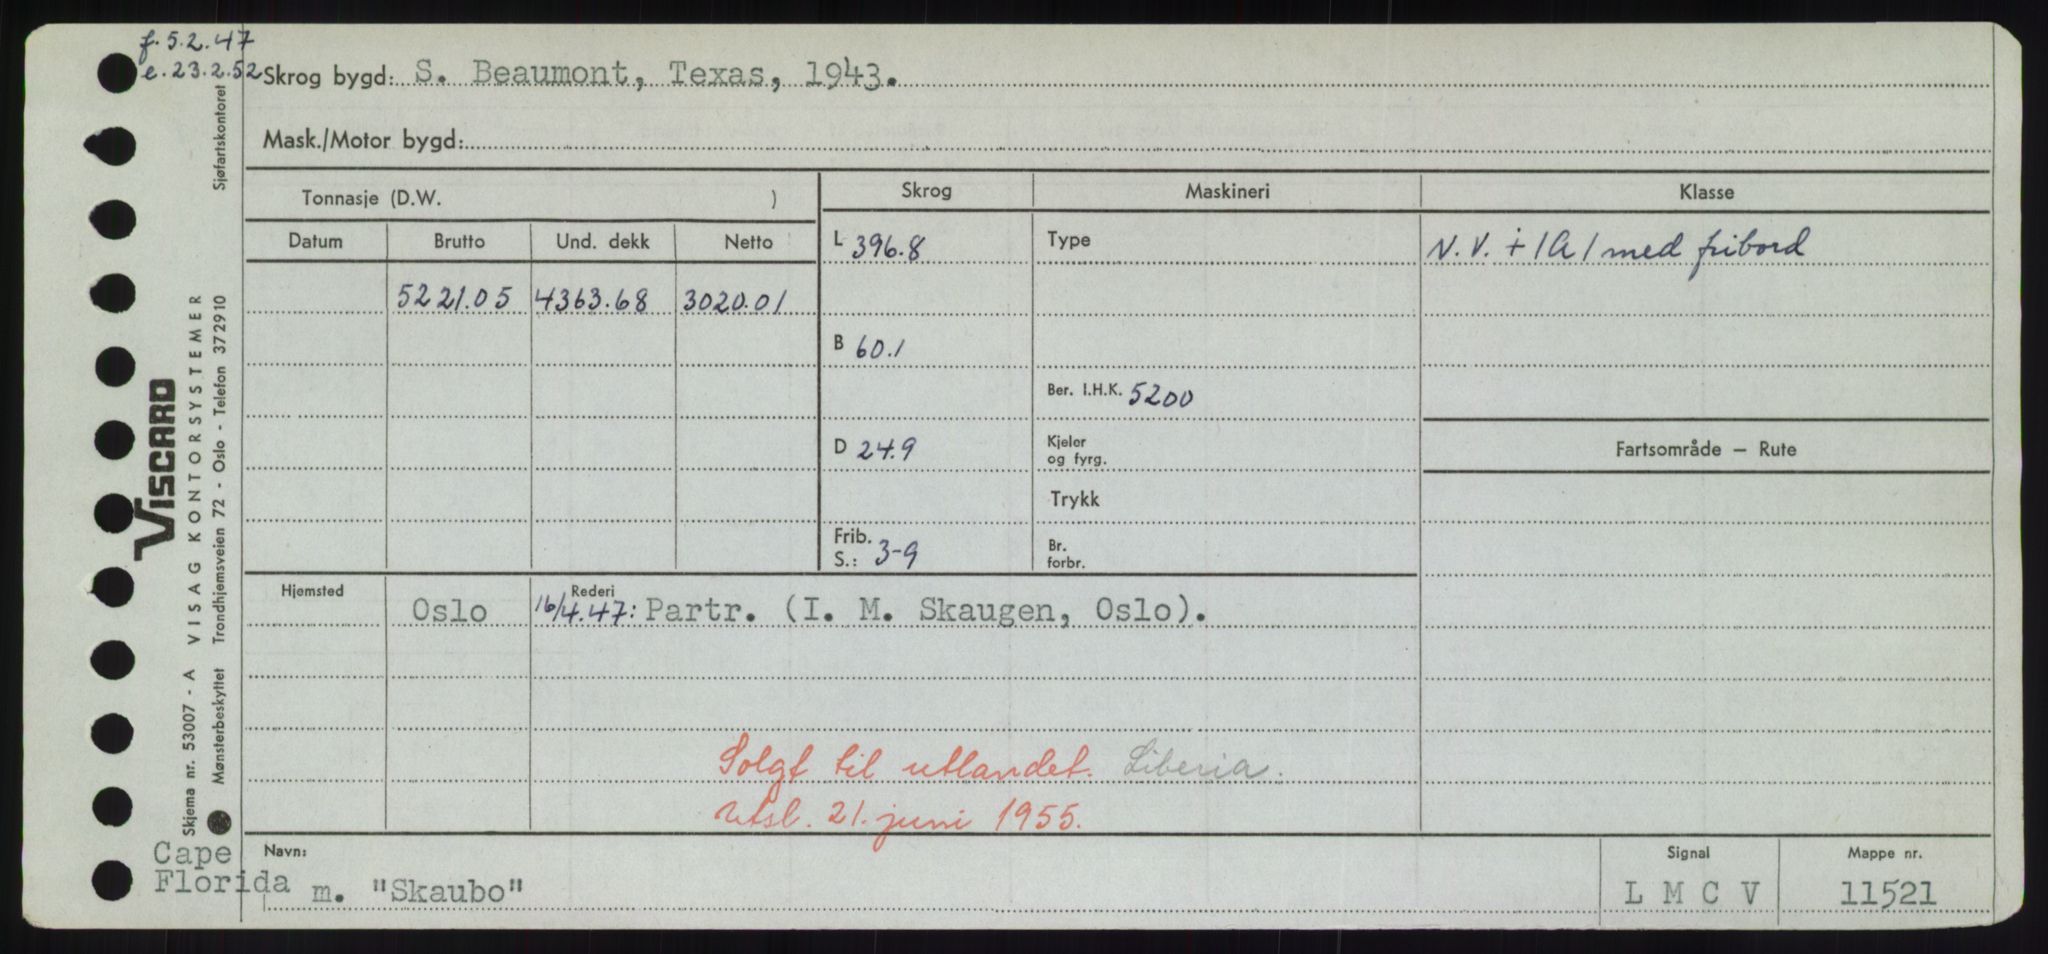 f. 5.2.47
e. 23.2.52
Skrog bygd: S. Beaumont, Texas, 1943.
Mask./Motor bygd:
Tonnasje (D.W. )
Skrog
Maskineri
Klasse
Datum
Brutto
Und. dekk
Netto
L 396.8
Type
N.V. + 1A1 med fribord
5221.05
4363.68
3020.01
B 60.1
Ber. I.H.K. 5200
D 24.9
Kjeler
og fyrg.
Fartsområde – Rute
Trykk
Frib.
S.: 3-9
Br.
forbr.
Hjemsted
Rederi
Oslo
16/4.47: Partr. (I. M. Skaugen, Oslo).
Solgt til utlandet. Liberia.
Utsl. 21. juni 1955.
Cape
Florida
Navn:
m. "Skaubo"
Signal
L M C V
Mappe nr.
11521
VISCARD
Skjema nr. 53007 - A VISAG KONTORSYSTEMER
Mønsterbeskyttet Trondhjemsveien 72 - Oslo - Telefon 372910 Sjøfartskontoret